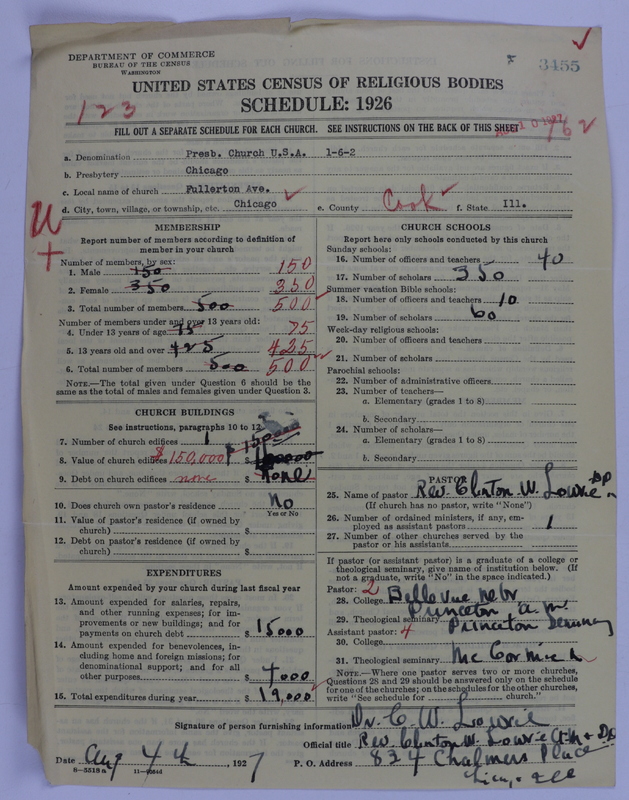 DEPARTMENT OF COMMERCE
BUREAU OF THE CENSUS
WASHINGTON
3455
UNITED STATES CENSUS OF RELIGIOUS BODIES
SCHEDULE: 1926
123
FILL OUT A SEPARATE SCHEDULE FOR EACH CHURCH. SEE INSTRUCTIONS ON THE BACK OF THIS SHEET
a. Denomination Presb. Church U.S.A. 1-6-2
b. Presbytery Chicago
c. Local name of church Fullerton Ave.
d. City, town, village, or township, etc. Chicago e. County Cook f. State Ill.
MEMBERSHIP
Report number of members according to definition of
member in your church
Number of members, by sex:
1. Male 150 150
2. Female 350 350
3. Total number of members 500 500
Number of members under and over 13 years old:
4. Under 13 years of age 75 75
5. 13 years old and over 425 425
6. Total number of members 500 500
NOTE.—The total given under Question 6 should be the
same as the total of males and females given under Question 3.
CHURCH BUILDINGS
See instructions, paragraphs 10 to 12
7. Number of church edifices 1
8. Value of church edifices $150,000 $
9. Debt on church edifices none $ None
10. Does church own pastor's residence No
Yes or No
11. Value of pastor's residence (if owned by
church) $
12. Debt on pastor's residence (if owned by
church) $
EXPENDITURES
Amount expended by your church during last fiscal year
13. Amount expended for salaries, repairs,
and other running expenses; for im-
provements or new buildings; and for
payments on church debt $ 15000
14. Amount expended for benevolences, in-
cluding home and foreign missions; for
denominational support; and for all
other purposes $ 4000
15. Total expenditures during year $ 19,000
CHURCH SCHOOLS
Report here only schools conducted by this church
Sunday schools:
16. Number of officers and teachers 40
17. Number of scholars 350
Summer vacation Bible schools:
18. Number of officers and teachers 10
19. Number of scholars 60
Week-day religious schools:
20. Number of officers and teachers
21. Number of scholars
Parochial schools:
22. Number of administrative officers
23. Number of teachers—
a. Elementary (grades 1 to 8)
b. Secondary
24. Number of scholars—
a. Elementary (grades 1 to 8)
b. Secondary
PASTOR
25. Name of pastor Rev. Clinton W. Lowrie
(If church has no pastor, write "None")
26. Number of ordained ministers, if any, em-
ployed as assistant pastors 1
27. Number of other churches served by the
pastor or his assistants
If pastor (or assistant pastor) is a graduate of a college or
theological seminary, give name of institution below. (If
not a graduate, write "No" in the space indicated.)
Pastor: 2
28. College Bellevue Nebr
Princeton A.M.
29. Theological seminary Princeton Seminary
Assistant pastor: 4
30. College
31. Theological seminary McCormick
NOTE.—Where one pastor serves two or more churches,
Questions 28 and 29 should be answered only on the schedule
for one of the churches; on the schedules for the other churches,
write "See schedule for church."
Signature of person furnishing information Dr. C. W. Lowrie
Official title Rev. Clinton W. Lowrie A.M. &
Date Aug 4th, 1927 P. O. Address 834 Chalmers Place
8-5518a